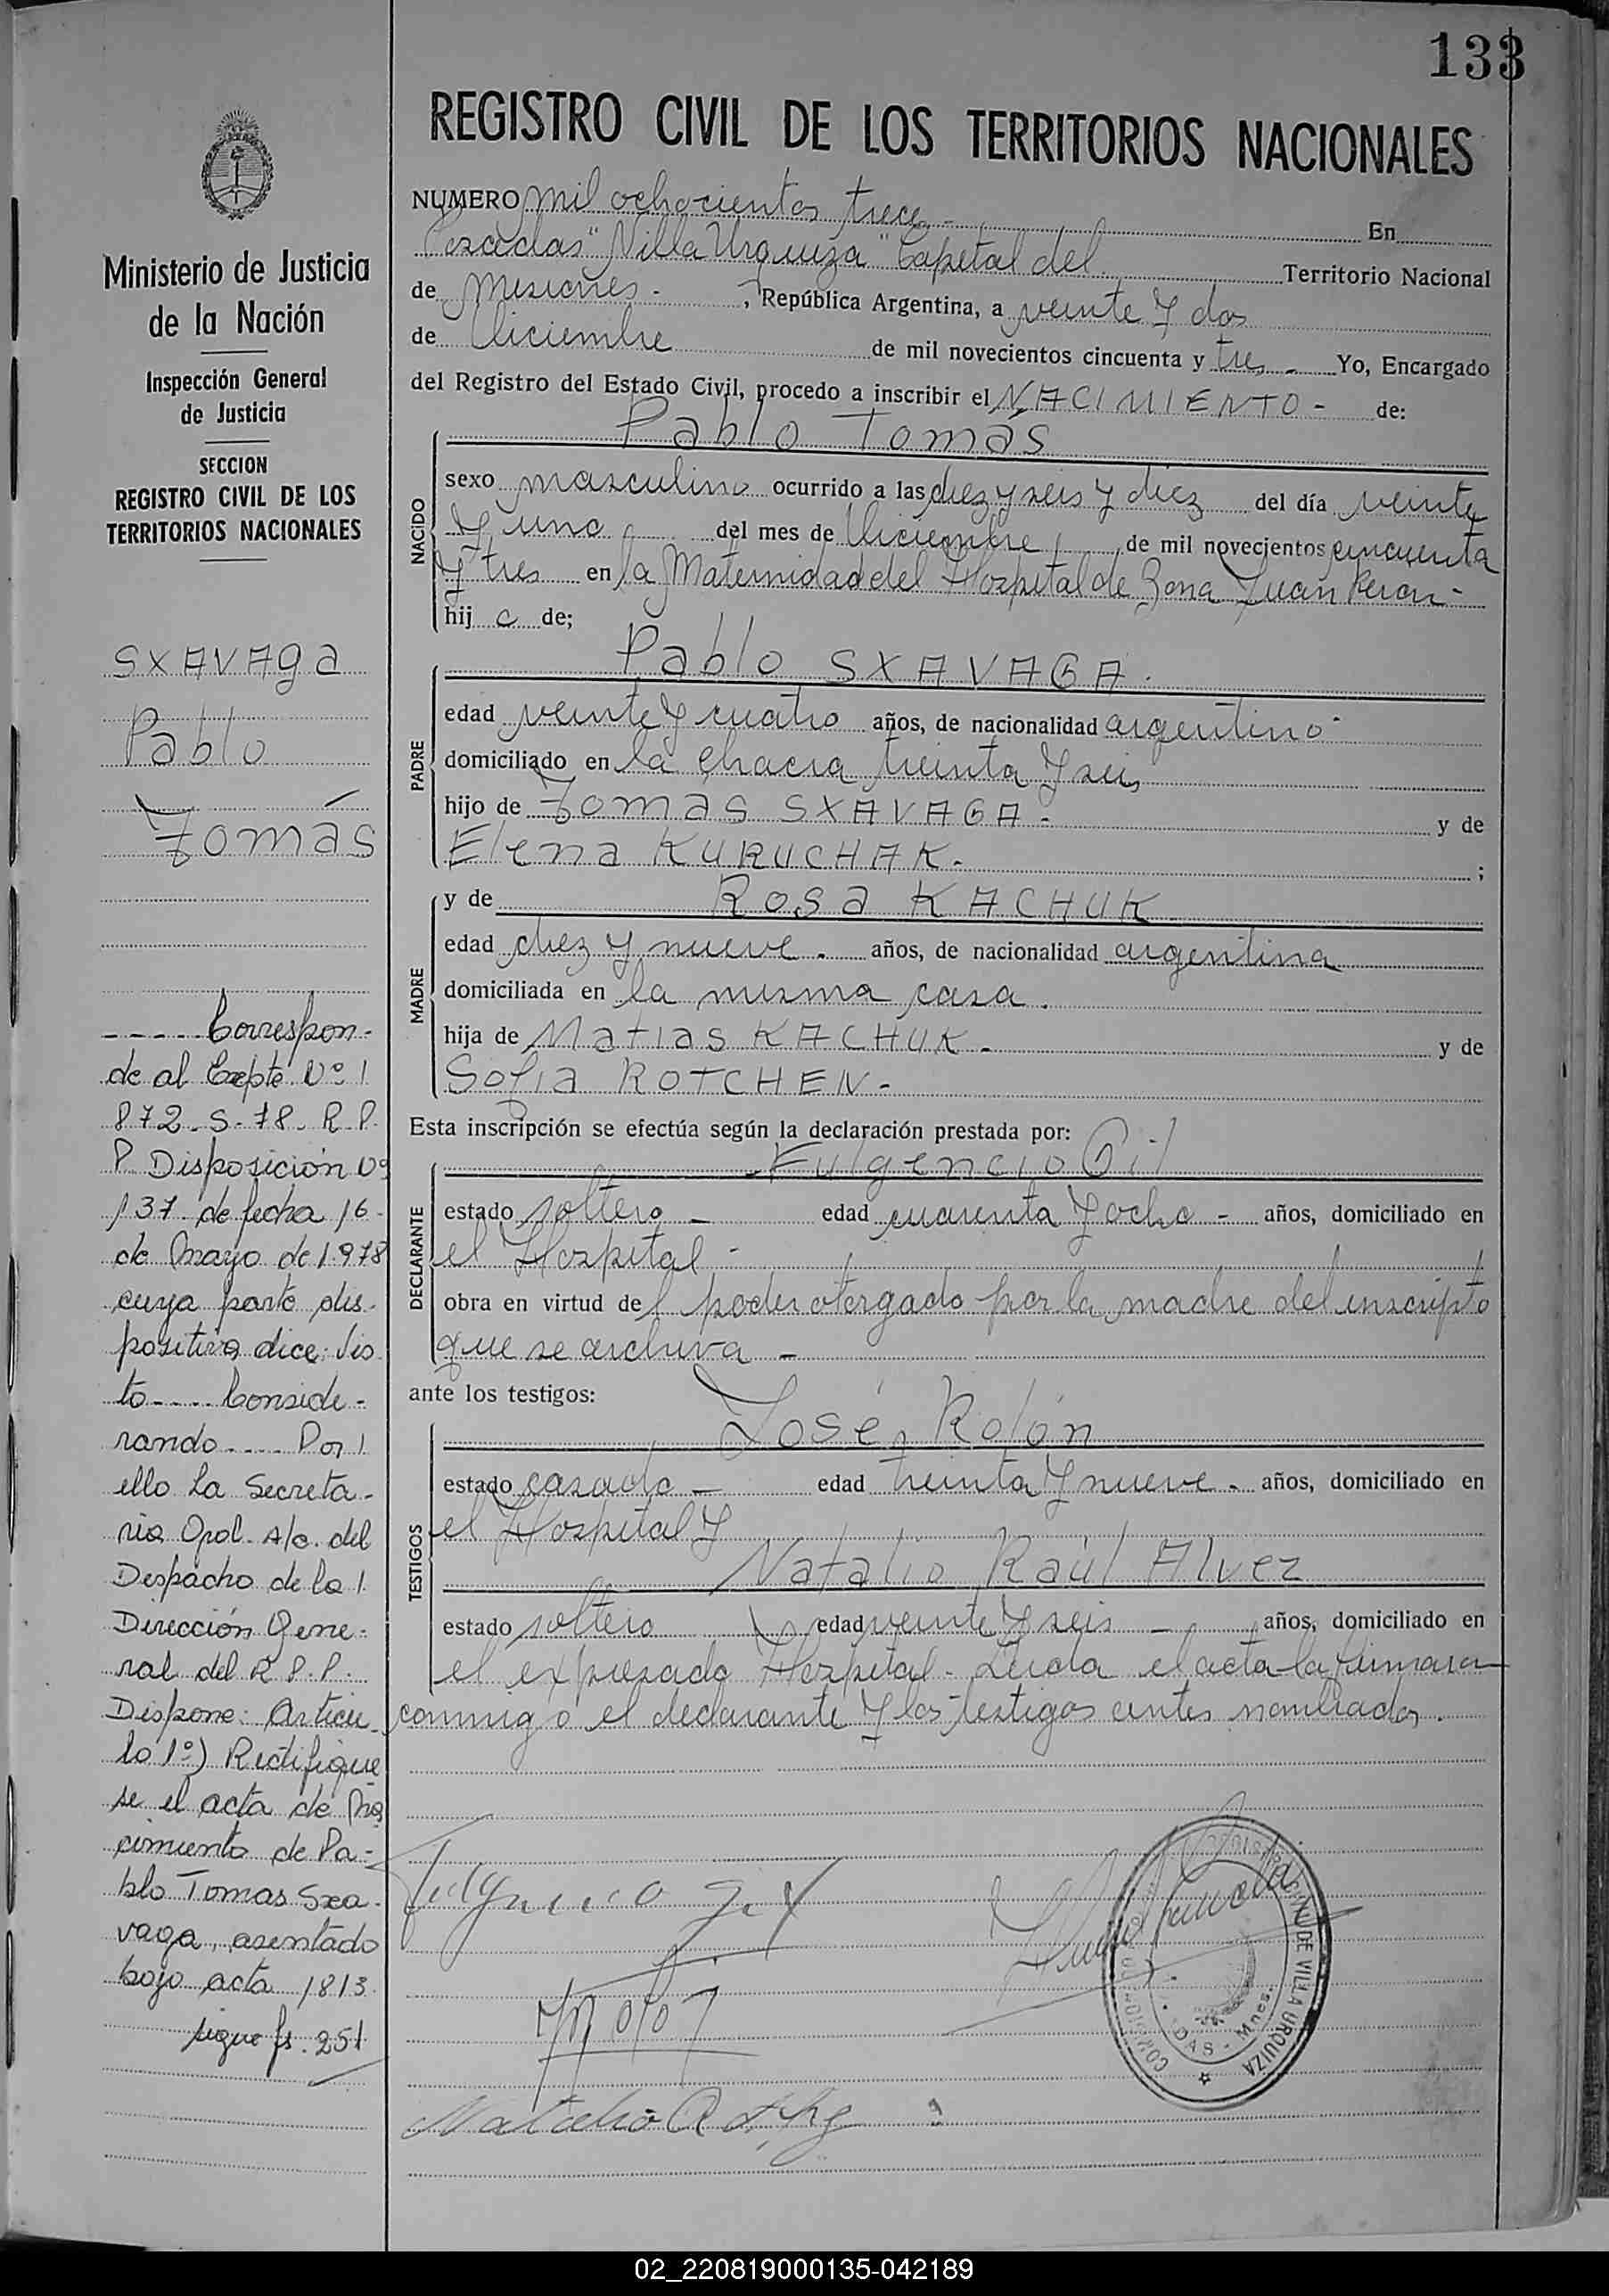 133
REGISTRO CIVIL DE LOS TERRITORIOS NACIONALES
NUMERO mil ochocientos trece - En
Posadas "Villa Urquiza" Capital del Territorio Nacional
de Misiones - , República Argentina, a veinte y dos
de Diciembre de mil novecientos cincuenta y tres - Yo, Encargado
del Registro del Estado Civil, procedo a inscribir el NACIMIENTO - de:
NACIDO
Pablo Tomás
sexo masculino ocurrido a las diez y seis y diez del día veinte
y uno del mes de Diciembre de mil novecientos cincuenta
y tres en la Maternidad del Hospital de Zona Juan Peron -
hij o de;
PADRE
Pablo SXAVAGA.
edad veinte y cuatro años, de nacionalidad argentino -
domiciliado en la chacra treinta y seis
hijo de Tomás SXAVAGA - y de
Elena KURUCHAK. ;
MADRE
y de Rosa KACHUK
edad diez y nueve . años, de nacionalidad argentina
domiciliada en la misma casa .
hija de Matias KACHUK - y de
Sofia ROTCHEN -
Esta inscripción se efectúa según la declaración prestada por:
DECLARANTE
Fulgencio Gil
estado soltero - edad cuarenta y ocho - años, domiciliado en
el Hospital -
obra en virtud del poder otorgado por la madre del inscripto
que se archiva -
ante los testigos:
TESTIGOS
José Rolón
estado casado - edad treinta y nueve . años, domiciliado en
el Hospital y
Natalio Raúl Alvez
estado soltero edad veinte y seis - años, domiciliado en
el expresado Hospital - Leida el acta la firmaron
conmigo el declarante y los testigos antes nombrados .
Fulgencio Gil
COMISION DE VILLA URQUIZA
DAS - Mnes.
Ministerio de Justicia
de la Nación
Inspección General
de Justicia
SECCION
REGISTRO CIVIL DE LOS
TERRITORIOS NACIONALES
SXAVAga
Pablo
Tomás
----- Correspon-
de al Expte Nº 1
872-S-78- R.P.
P Disposición Nº
137 de fecha 16-
de Mayo de 1.978
cuya parte dis-
positiva dice: Vis
to---- Conside-
rando---- Por 1
ello La Secreta-
ria Gral. A/c. del
Despacho de la 1
Dirección Gene-
ral del R.P.P.
Dispone: Articu-
lo 1º) Rectifique
se el acta de Na
cimiento de Pa-
blo Tomas Sxa-
vaga, asentado
bajo acta 1813.
sigue fs. 251
02_220819000135-042189